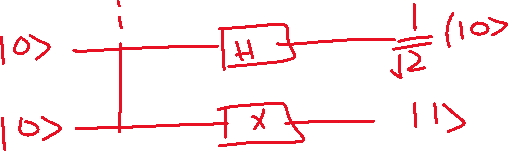 |0> H 1/√2 (|0>
|0> X |1>